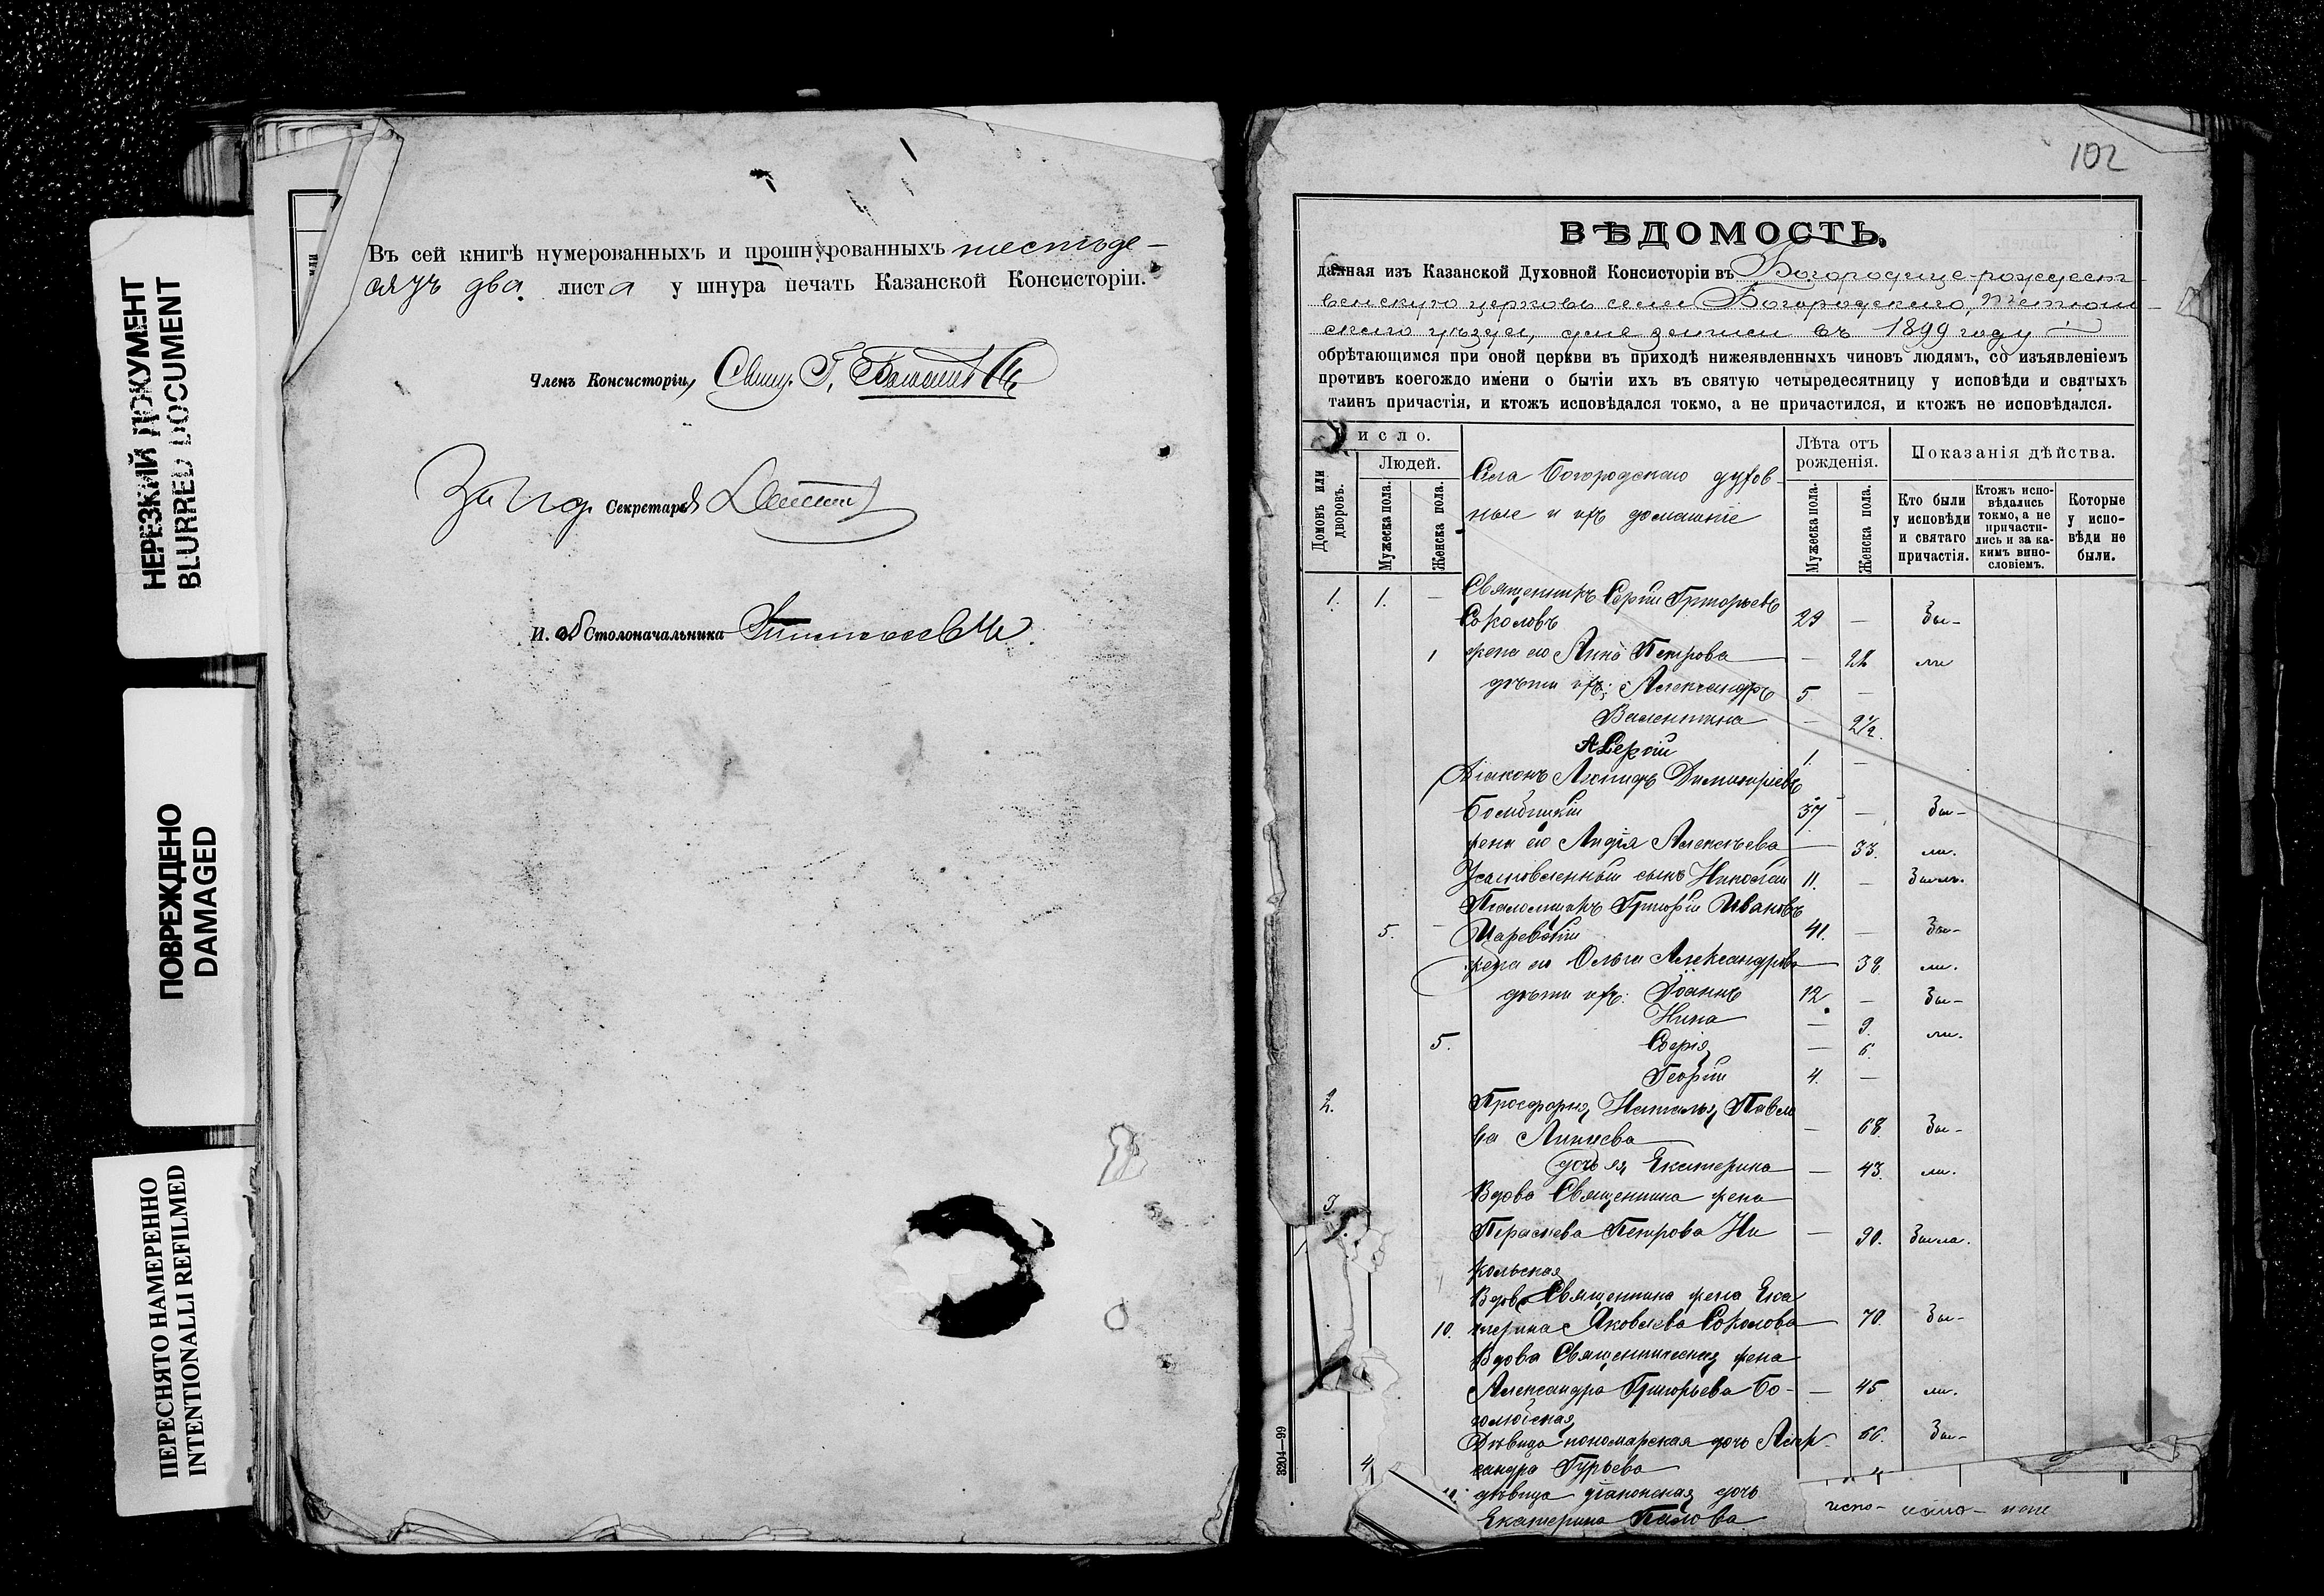 НЕРЕЗКИЙ ДОКУМЕНТ
BLURRED DOCUMENT
ПОВРЕЖДЕНО
DAMAGED
ПЕРЕСНЯТО НАМЕРЕННО
INTENTIONALLI REFILMED
Въ сей книгѣ нумерованныхъ и прошнурованныхъ шестьде-
сятъ два листа у шнура печать Казанской Консисторіи.
Членъ Консисторіи, Свящ. Г.
За Секретаря
И. об Столоначальника
102
ВѢДОМОСТЬ,
данная изъ Казанской Духовной Консисторіи въ Богородице-рождест-
венскую церковь села Богородскаго, Тетюш-
скаго уѣзда, для записи въ 1899 году
обрѣтающимся при оной церкви въ приходѣ нижеявленныхъ чиновъ людямъ, со изъявленіемъ
противъ коегождо имени о бытіи ихъ въ святую четыредесятницу у исповѣди и святыхъ
таинъ причастія, и ктожъ исповѣдался токмо, а не причастился, и ктожъ не исповѣдался.
Число.
Людей.
Домовъ или дворовъ.
Мужеска пола.
Женска пола.
Села Богородскаго духов-
ные и ихъ домашніе
Лѣта отъ рожденія.
Мужеска пола.
Женска пола.
Показанія дѣйства.
Кто были у исповѣди и святаго причастія.
Ктожъ испо-вѣдались токмо, а не причасти-лись и за ка-кимъ вино-словіемъ.
Которые у испо-вѣди не были.
1. 1. — Священникъ Сергій Григорьевъ
Соколовъ 29 — Бы-
1 жена его Анна Петрова — 28 ли
дѣти ихъ: Александръ 5. —
Валентина — 2½.
Сергій 1. —
Діаконъ Леонидъ Димитріевъ
37 — Бы-
жена его Лидія Алексѣева — 33. ли.
Усыновленный сынъ Николай 11. — Былъ.
Псаломщикъ Григорій Ивановъ
5. — Царевскій 41. — Бы-
жена его Ольга Александрова 38. ли.
дѣти ихъ: Іоаннъ 12 — Бы-
Нина — 9. ли.
5. — 6.
Георгій 4. —
2. Просфорня Наталья Павло
ва — 68. Бы-
дочь ея Екатерина — 43. ли.
3. Вдова Священника жена
Параскева Петрова Ни — 90. Была.
кольская
Вдова Священника жена Ека
10. терина Яковлева Соколова 70. Бы-
Вдова Священническая жена
Александра Григорьева Бо- — 45. ли.
голюбская
Дѣвица пономарская дочь Алек 66. Бы-
4 сандра Гурьева
дѣвица діаконская дочь
Екатерина
3204—99